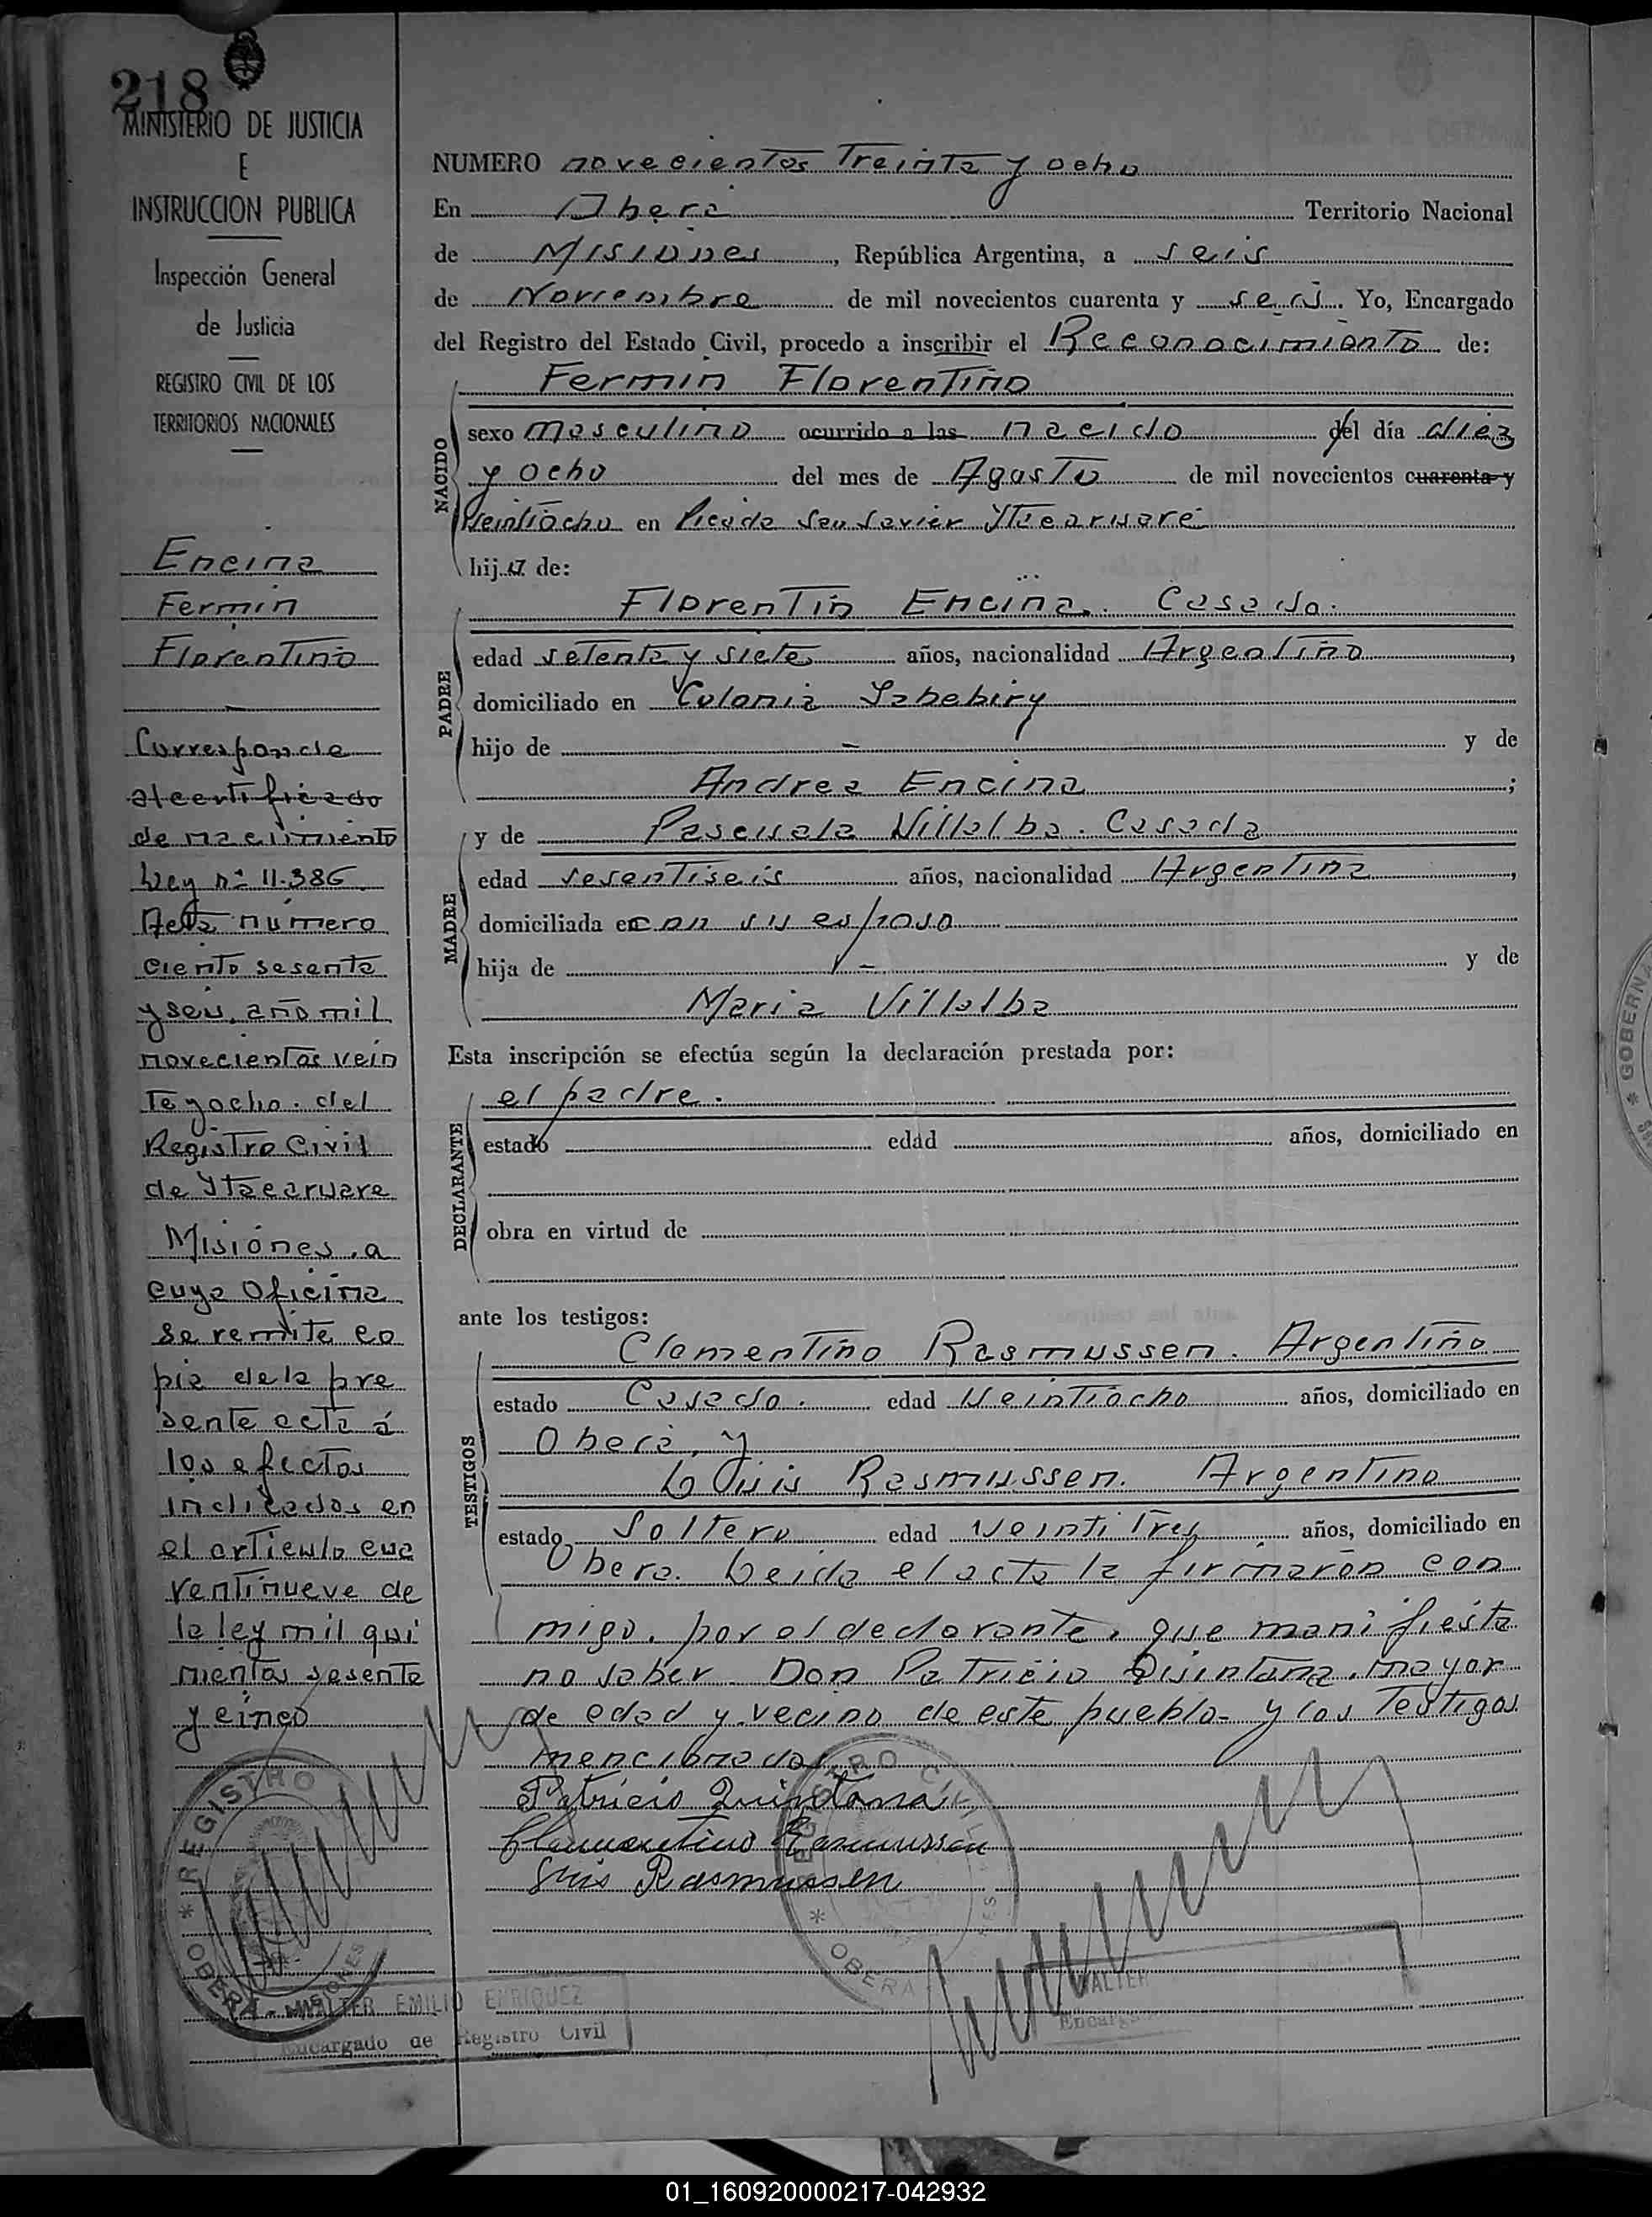 218
MINISTERIO DE JUSTICIA
E
INSTRUCCION PUBLICA
Inspección General
de Justicia
REGISTRO CIVIL DE LOS
TERRITORIOS NACIONALES
Encina
Fermin
Florentino
Corresponde
al certificado
de nacimiento
Ley nº 11.386
Acta número
ciento sesenta
y seis, año mil
novecientos vein
te y ocho. del
Registro Civil
de Ytacaruare
Misiones, a
cuya Oficina
se remite co
pia de la pre
sente acta á
los efectos
indicados en
el artículo cua
rentinueve de
la ley mil qui
nientos sesenta
y cinco
NUMERO novecientos treinta y ocho
En Oberá Territorio Nacional
de Misiones, República Argentina, a seis
de Noviembre de mil novecientos cuarenta y seis. Yo, Encargado
del Registro del Estado Civil, procedo a inscribir el Reconocimiento de:
Fermin Florentino
NACIDO
sexo masculino ocurrido a las nacido del día diez
y ocho del mes de Agosto de mil novecientos cuarenta y
Veintiocho en Picada San Javier Ytacaruaré
hijo de:
Florentin Encina. Casado.
PADRE
edad setenta y siete años, nacionalidad Argentino,
domiciliado en Colonia Yabebiry
hijo de - y de
Andrea Encina;
y de Pascuala Villalba. Casada
MADRE
edad sesentiseis años, nacionalidad Argentina,
domiciliada en con su esposo
hija de - y de
Maria Villalba
Esta inscripción se efectúa según la declaración prestada por:
el padre.
DECLARANTE
estado edad años, domiciliado en
obra en virtud de
ante los testigos:
Clementino Rasmussen. Argentino
TESTIGOS
estado Casado. edad Veintiocho años, domiciliado en
Oberá, y
Luis Rasmussen. Argentino
estado Soltero edad Veintitres años, domiciliado en
Obera. Leida el acta la firmaron con
migo, por el declarante, que manifiesta
no saber Don Patricio Quintana, mayor
de edad y vecino de este pueblo- y los Testigos
mencionados
Patricio Quintana
Clementino Rasmussen
Luis Rasmussen
REGISTRO
OBERA - MISIONES
REGISTRO CIVIL
OBERA
WALTER EMILIO ENRIQUEZ
Encargado de Registro Civil
WALTER
Encargado
GOBERN
01_160920000217-042932